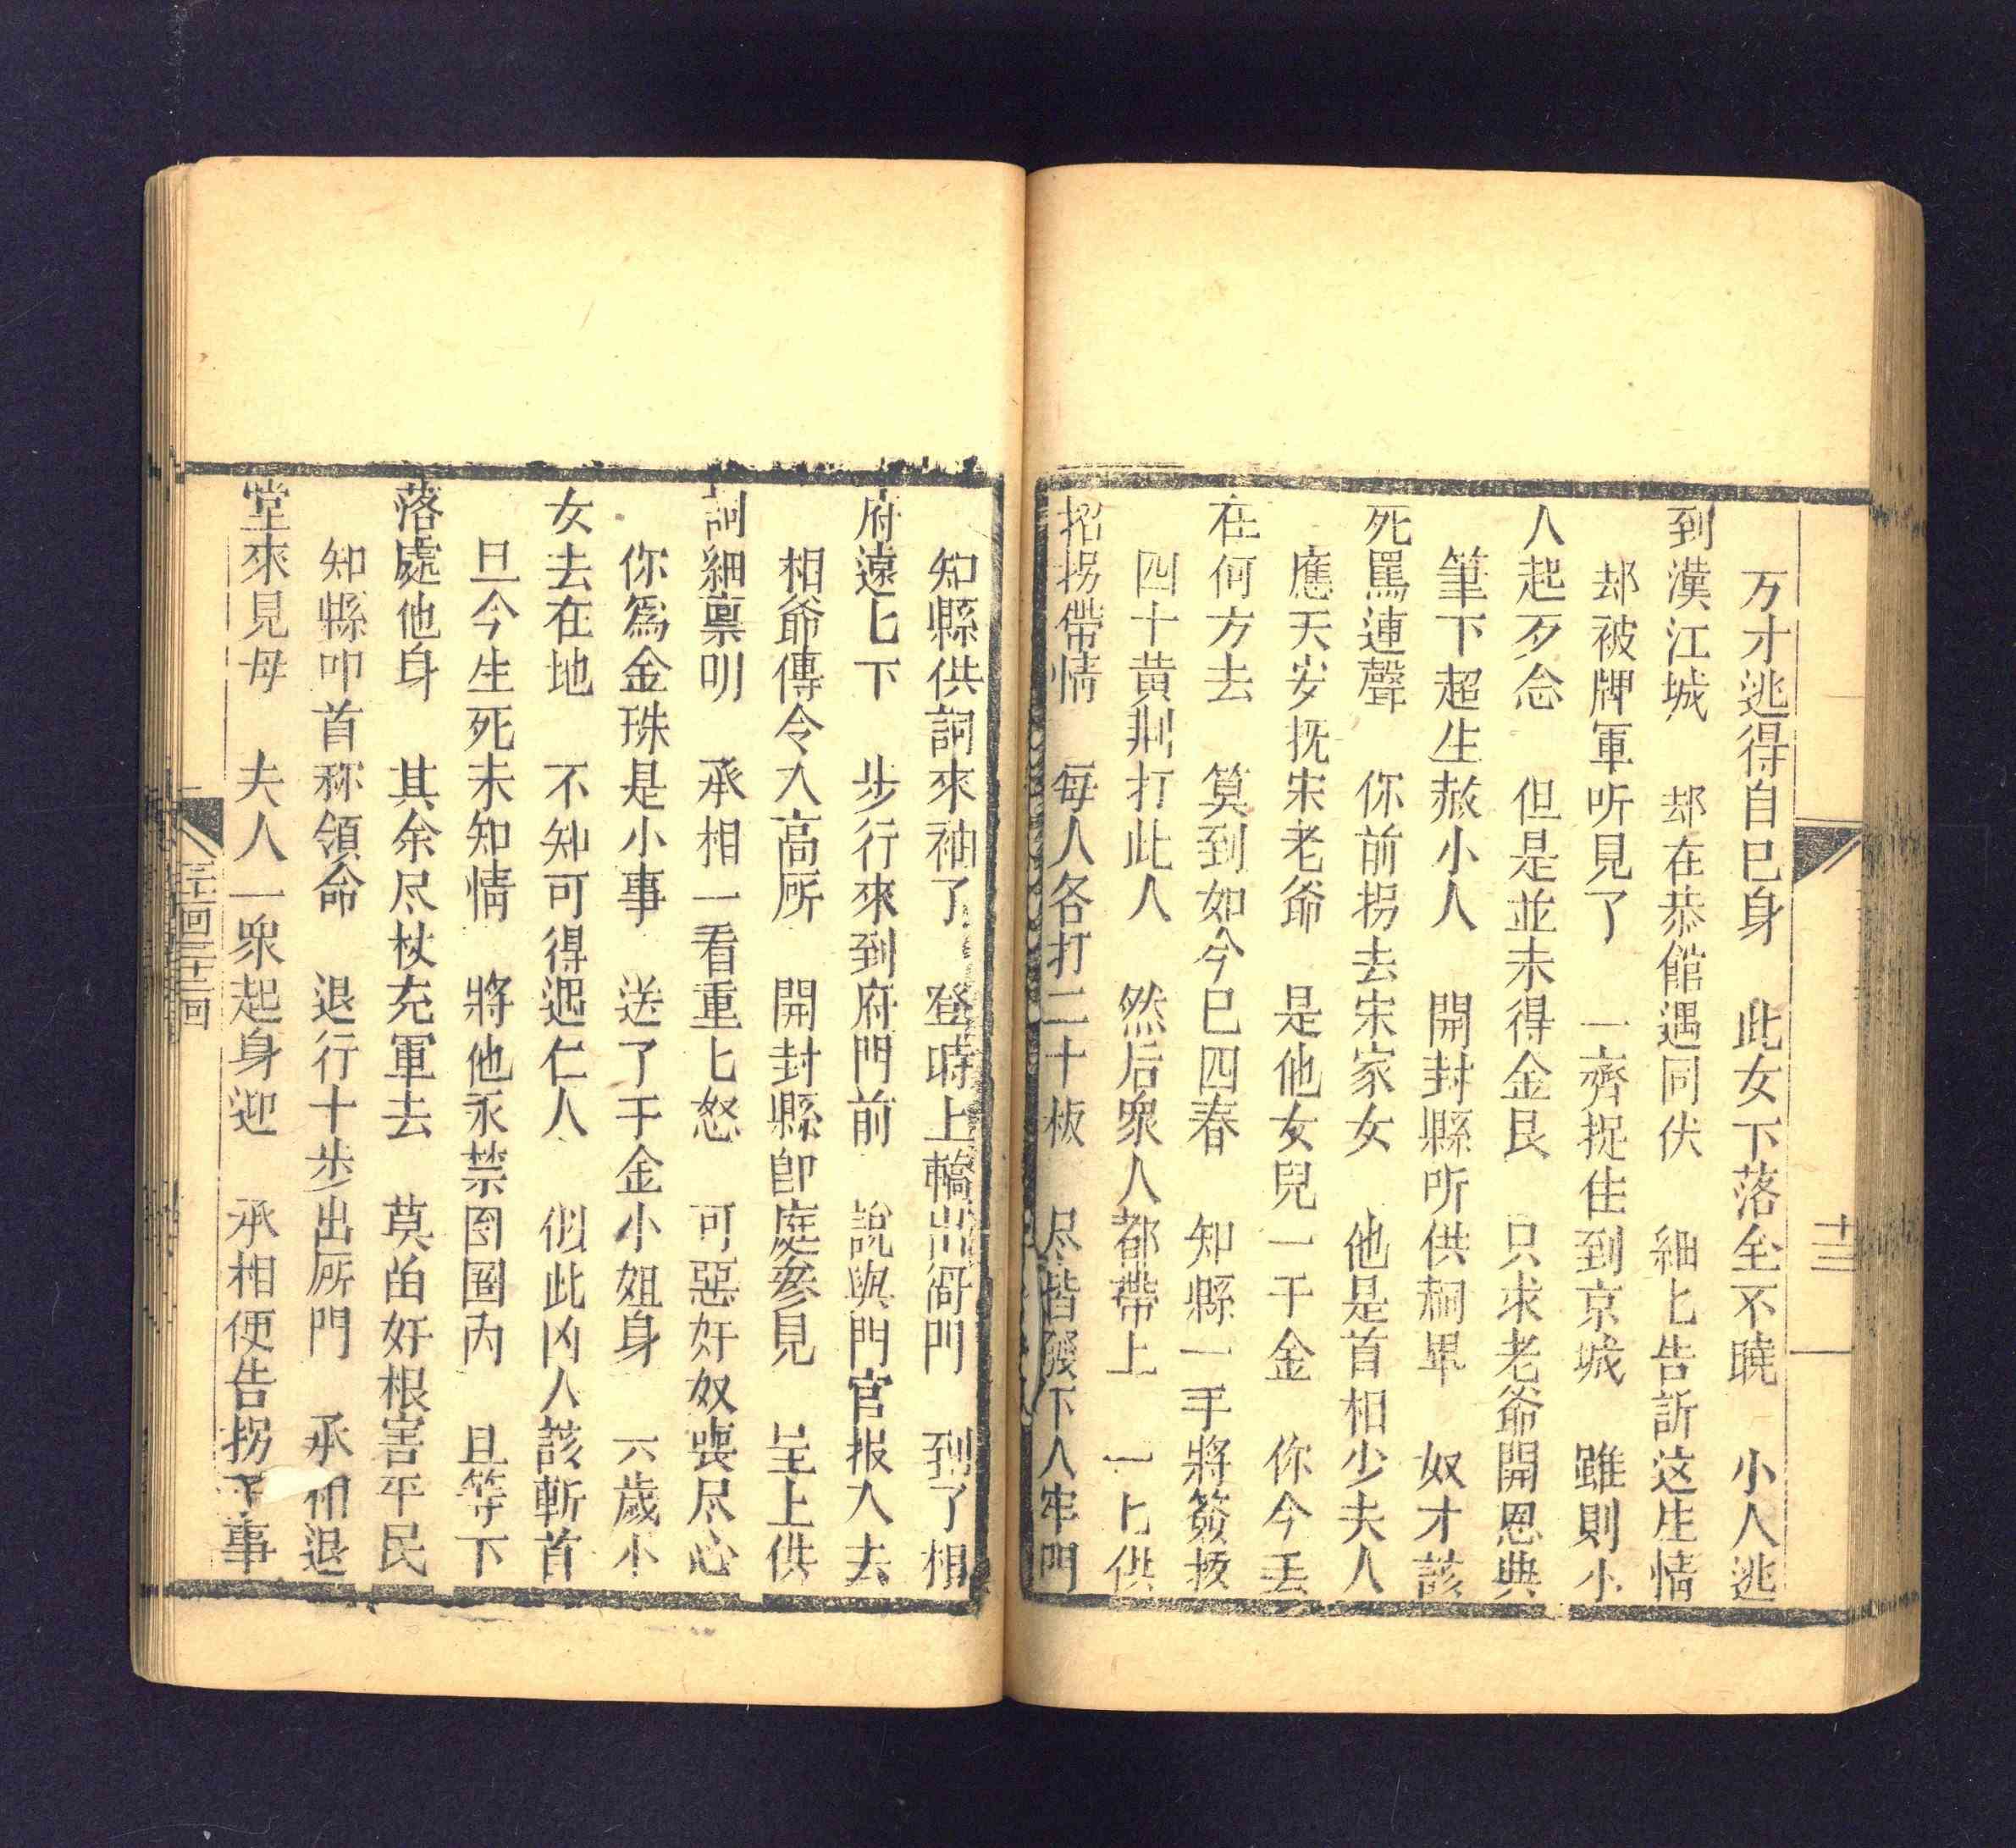 万才逃得自己身　此女下落全不曉　小人逃
到漢江城　却在恭館遇同伏　細匕告訴这生情
却被牌軍听見了　一齊捉住到京城　雖則小
人起歹念　但是並未得金艮　只求老爺開恩典
筆下超生赦小人　開封縣听供嗣畢　奴才該
死罵連聲　你前拐去宋家女　他是首相少夫人
應天安抚宋老爺　是他女兒一千金　你今丢
在何方去　算到如今已四春　知縣一手將簽拔
四十黄荆打此人　然后衆人都帶上　一匕供
招拐帶情　每人各打二十板　尽皆發下入牢門
十三
知縣供詞來袖了　登時上轎出衙門　到了相
府遠匕下　步行來到府門前　說與門官报入去
相爺傳令入高所　開封縣即庭參見　呈上供
詞細禀明　承相一看重匕怒　可惡奸奴喪尽心
你爲金珠是小事　送了千金小姐身　六歲小
女去在地　不知可得遇仁人　似此凶人該斬首
旦今生死未知情　將他永禁囹圄内　且等下
落處他身　其余尽杖充軍去　莫留奸根害平民
知縣叩首称領命　退行十步出所門　承相退
堂來見母　夫人一衆起身迎　承相便告拐子事